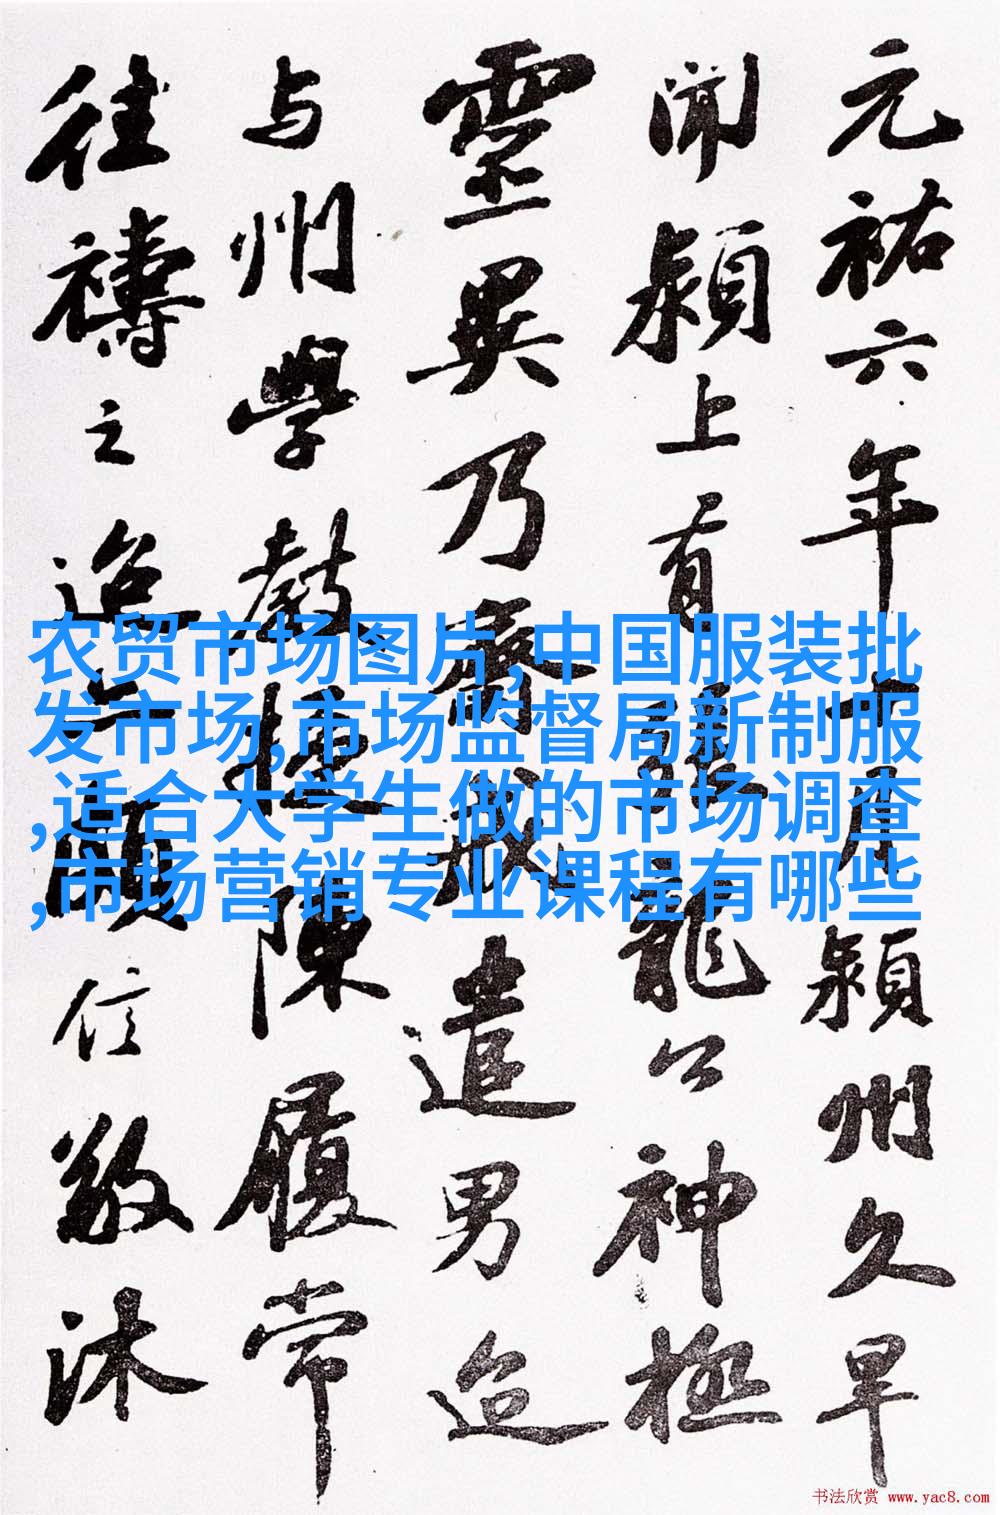 元祐六年十月潁州久旱
聞潁上有張龍公神極
靈異乃齋戒遣男迨
与州學教授陳履常
往禱之迨亦頗信敬沐
农贸市场图片,中国服装批
发市场,市场监督局新制服
,适合大学生做的市场调查
,市场营销专业课程有哪些
书法欣赏 www.yac8.com